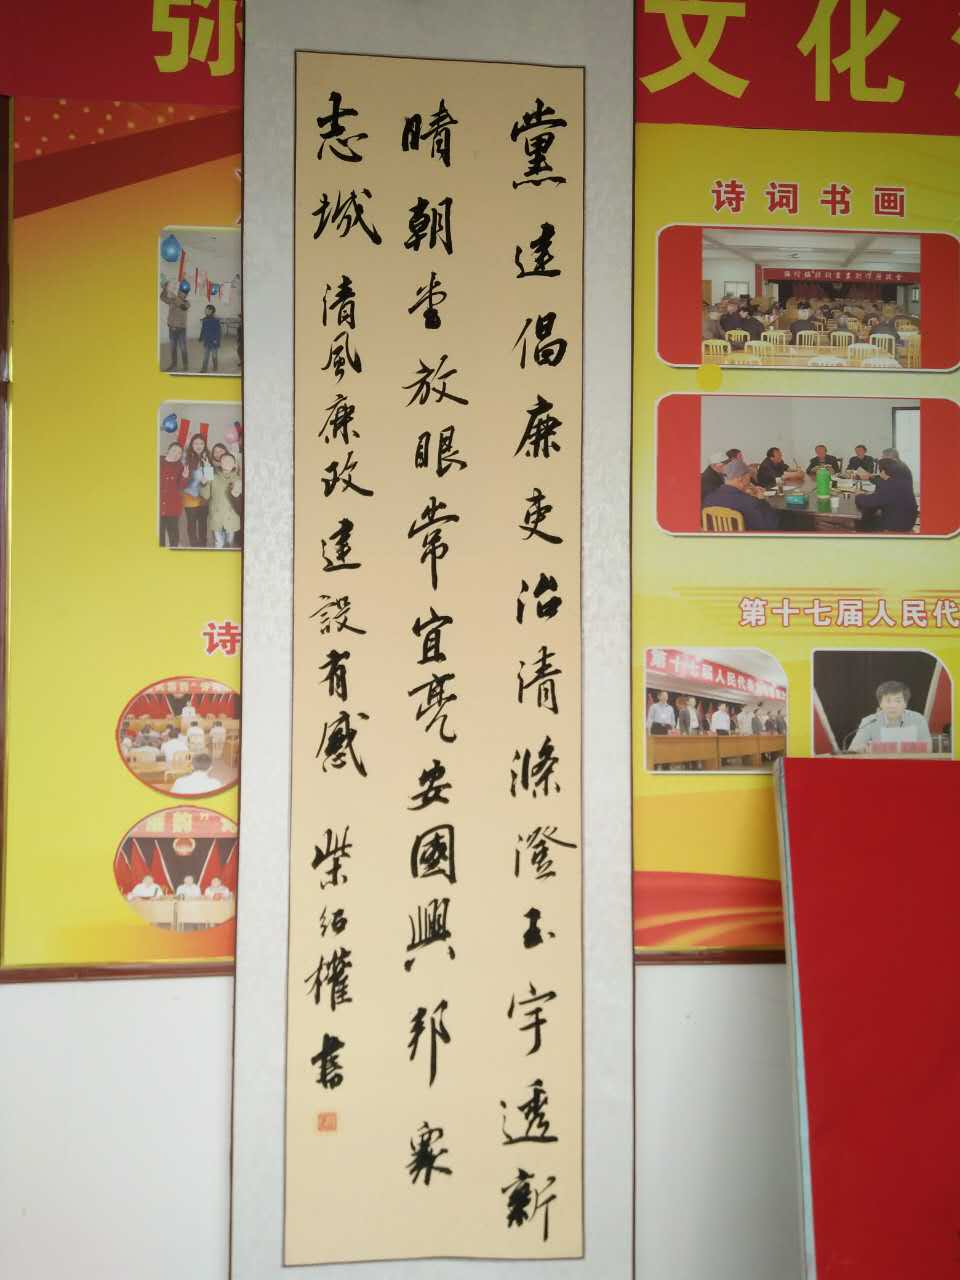 弥
文化
黨建倡廉吏治清滌澄玉宇透新
晴朝堂放眼常宜亮安國興邦衆
志城清風廉政建設有感 柴紹權書
诗词书画
第十七届人民代
第十七届人民代表
诗